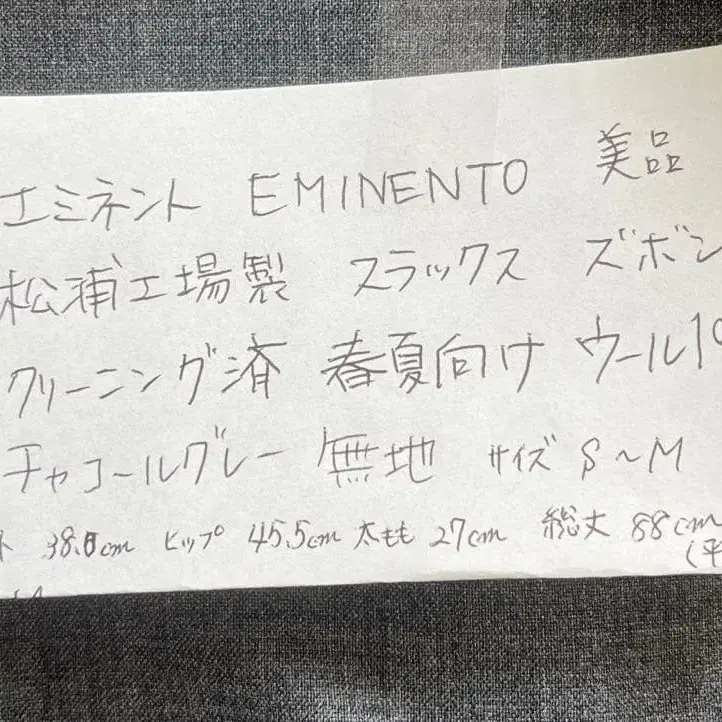 エミネント EMINENTO 美品
松浦工場製 スラックス ズボン
クリーニング済 春夏向け ウール10
チャコールグレー 無地 サイズ S～M
ト 38.0cm ヒップ 45.5cm 太もも 27cm 総丈 88cm
(平